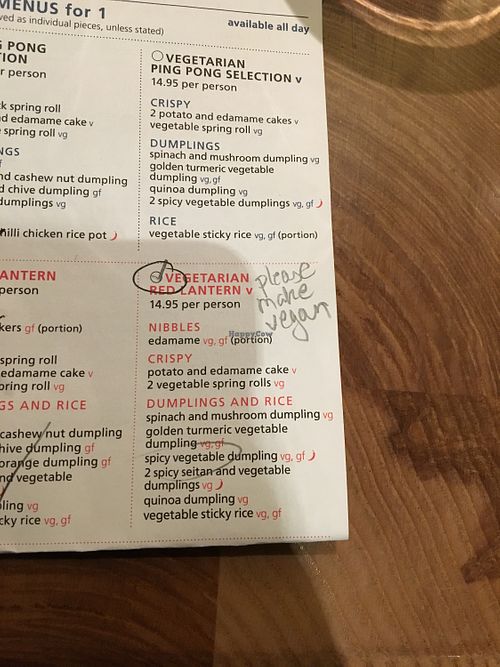 MENUS for 1
ved as individual pieces, unless stated)
available all day
PONG
TION
er person
ck spring roll
nd edamame cake v
e spring roll vg
NGS
f
nd cashew nut dumpling
d chive dumpling gf
dumplings vg
hilli chicken rice pot
VEGETARIAN
PING PONG SELECTION v
14.95 per person
CRISPY
2 potato and edamame cakes v
vegetable spring roll vg
DUMPLINGS
spinach and mushroom dumpling vg
golden turmeric vegetable
dumpling vg, gf
quinoa dumpling vg
2 spicy vegetable dumplings vg, gf
RICE
vegetable sticky rice vg, gf (portion)
ANTERN
er person
kers gf (portion)
spring roll
d edamame cake v
pring roll vg
GS AND RICE
cashew nut dumpling
hive dumpling gf
orange dumpling gf
nd vegetable
pling vg
cky rice vg, gf
VEGETARIAN
RED LANTERN v
14.95 per person
please
make
vegan
NIBBLES
edamame vg, gf (portion)
CRISPY
potato and edamame cake v
2 vegetable spring rolls vg
DUMPLINGS AND RICE
spinach and mushroom dumpling vg
golden turmeric vegetable
dumpling vg, gf
spicy vegetable dumpling vg, gf
2 spicy seitan and vegetable
dumplings vg
quinoa dumpling vg
vegetable sticky rice vg, gf
HappyCow